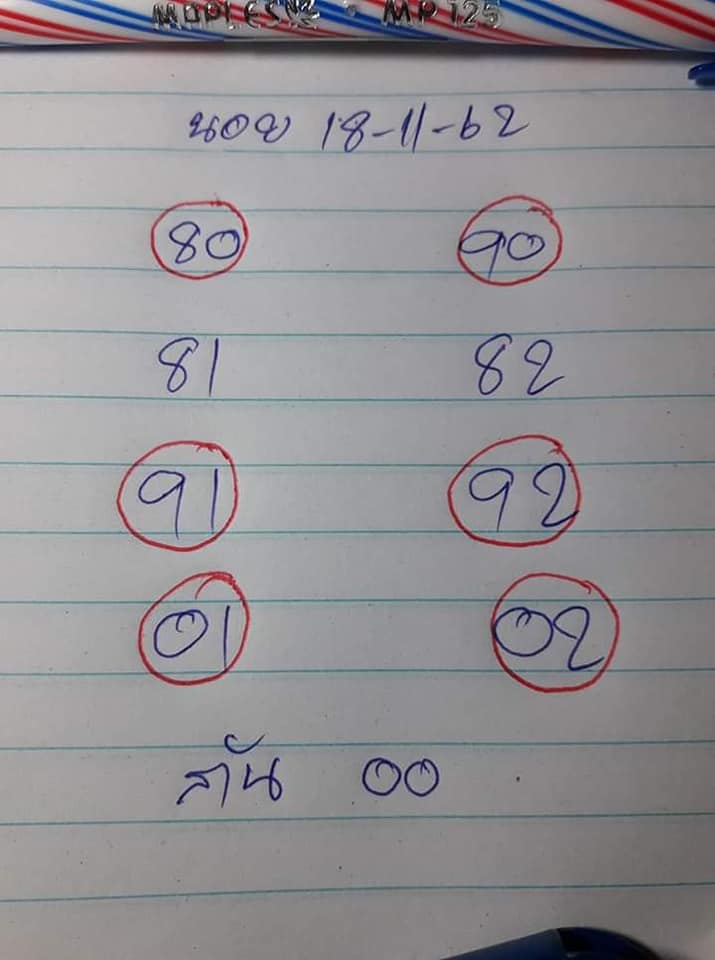 MAPLES MP 125
นอย 18-11-62
80 90
81 82
91 92
01 02
กัน 00